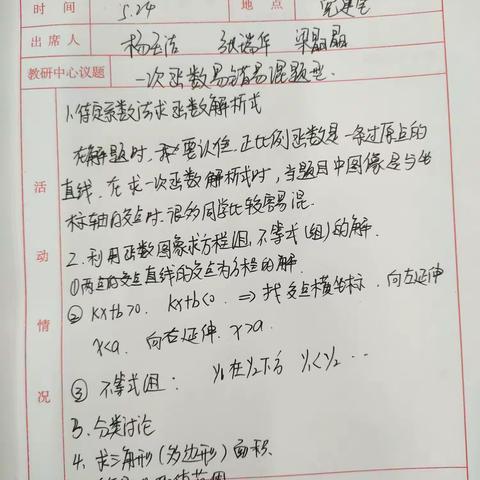 时间 5.24 地点
出席人 杨 张瑞华 梁晶晶
教研中心议题 一次函数易错易混题型.
活动情况
1.待定系数法求函数解析式
在解题时,要认准.正比例函数是一条过原点的
直线.在求一次函数解析式时,当题目中图像是与坐
标轴的交点时.很多同学比较容易混.
2.利用函数图象求方程(组),不等式(组)的解.
①两点的交点直线的交点为方程的解.
② kx+b>0. kx+b<0. ⇒ 找交点横坐标. 向左延伸
x<a. 向右延伸. x>a.
③ 不等式组: y₁在y₂下方 y₁<y₂ ...
3.分类讨论
4.求三角形(多边形)面积.